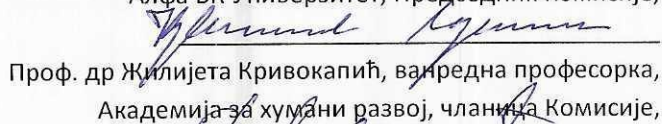 Алфа БК Универзитет, Председник Комисије,
Проф. др Жилијета Кривокапић, ванредна професорка,
Академија за хумани развој, чланица Комисије,